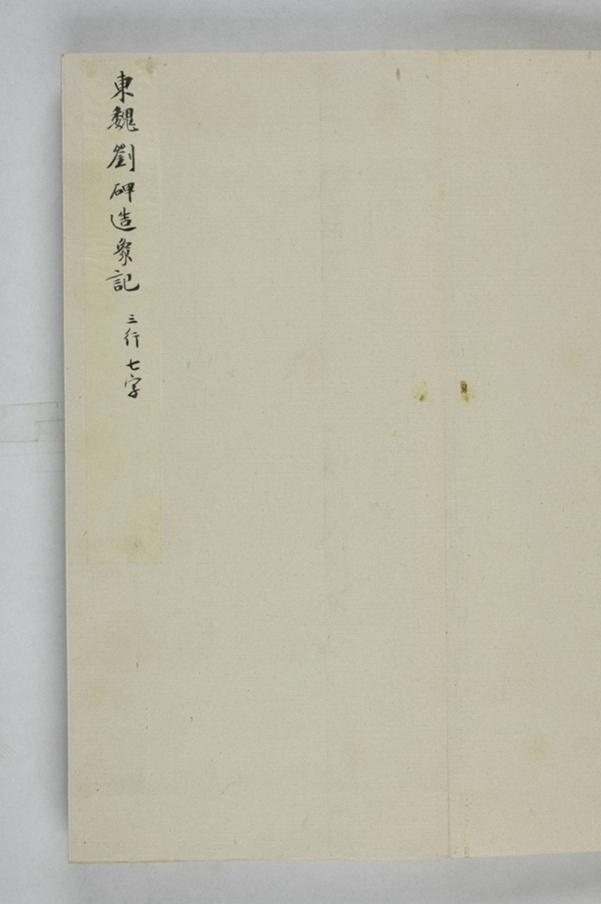 東魏劉碑造象記 三行七字